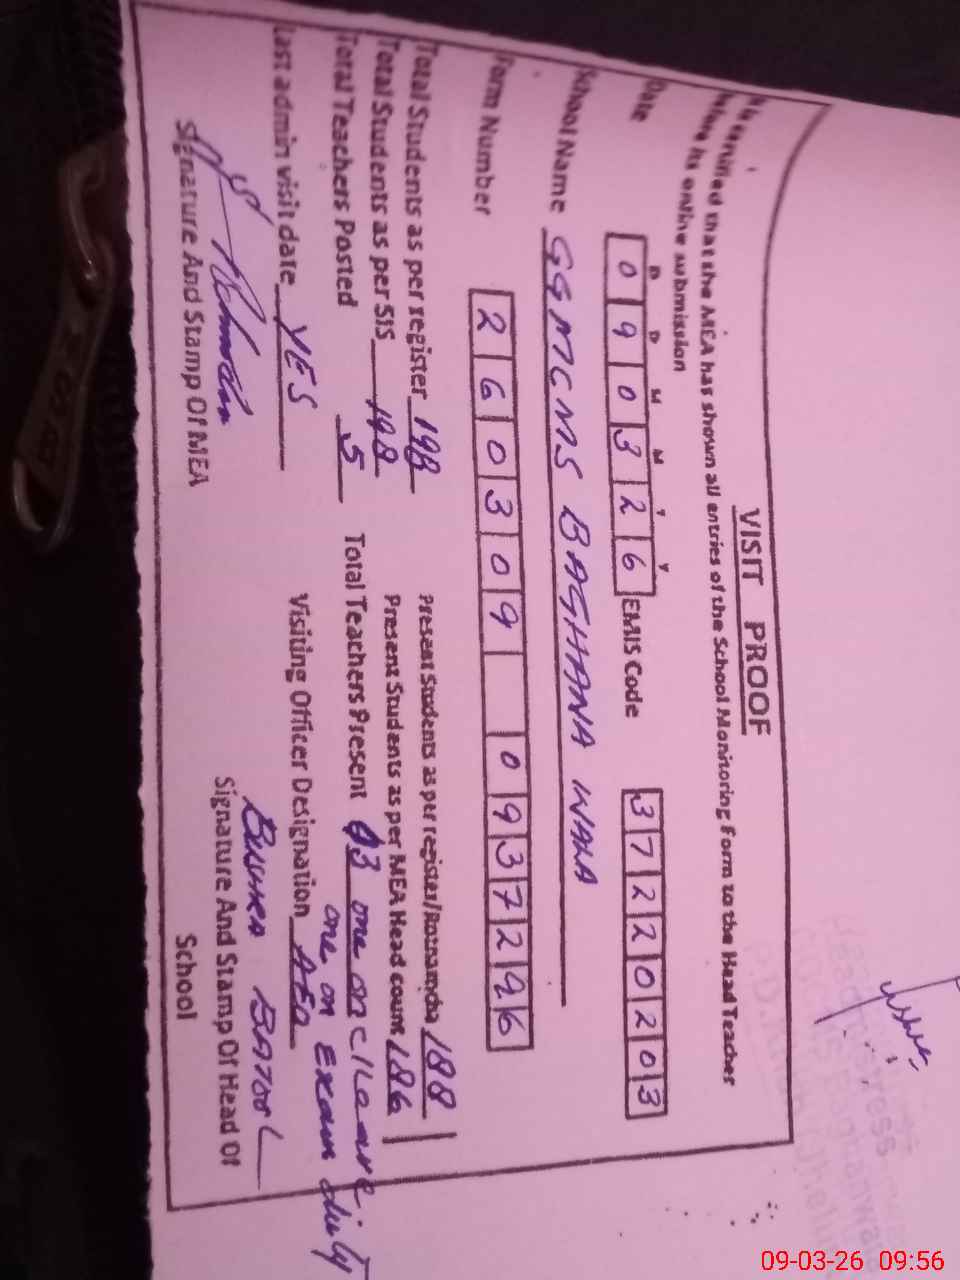 VISIT PROOF
It is certified that the MEA has shown all entries of the School Monitoring Form to the Head Teacher
before its online submission
D D M M Y Y
Date 0 9 0 3 2 6 EMIS Code 3 7 2 2 0 2 0 3
School Name GGMCMS BAGHANA WALA
Form Number 2 6 0 3 0 9 0 9 3 7 2 9 6
Total Students as per register 198 Present Students as per register/Roznamcha 188
Total Students as per SIS 198 Present Students as per MEA Head count 186
Total Teachers Posted 5 Total Teachers Present 03 one on C/Leave
one on Exam duty
Last admin visit date YES Visiting Officer Designation AEO
Bushra Batool
Signature And Stamp Of MEA Signature And Stamp Of Head Of
School
09-03-26 09:56